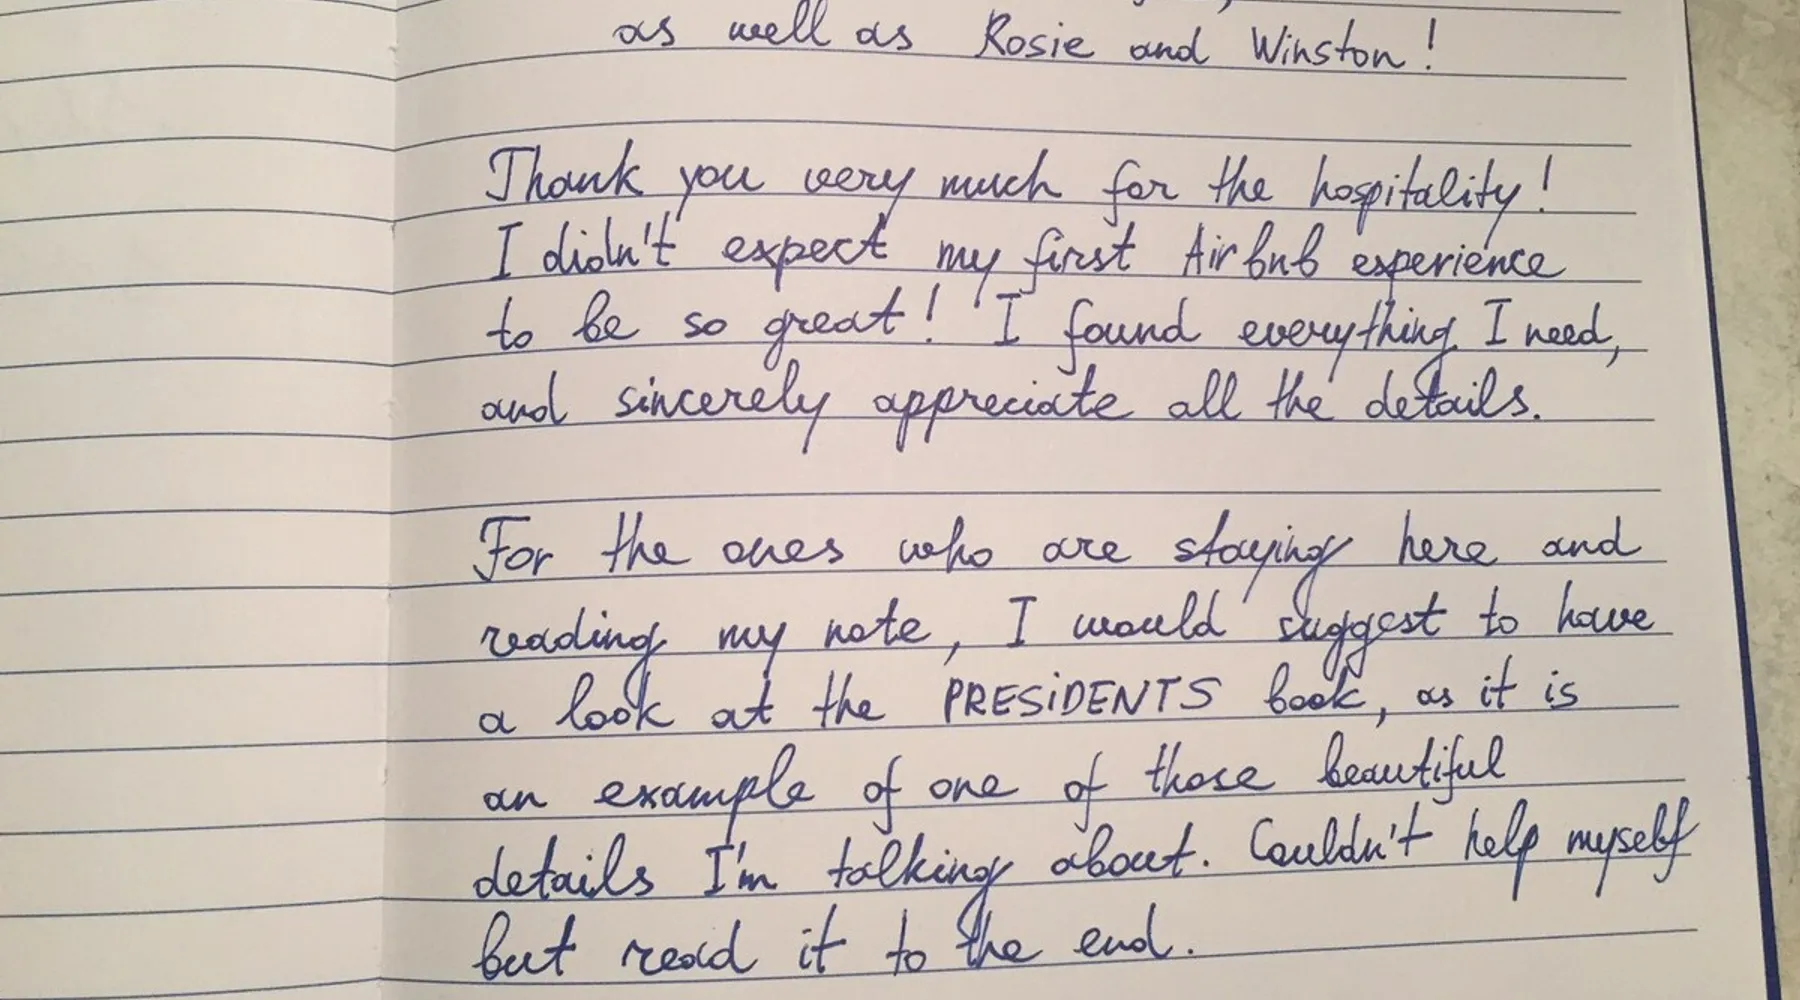 as well as Rosie and Winston!
Thank you very much for the hospitality!
I didn't expect my first Airbnb experience
to be so great! I found everything I need,
and sincerely appreciate all the details.
For the ones who are staying here and
reading my note, I would suggest to have
a look at the PRESiDENTS book, as it is
an example of one of those beautiful
details I'm talking about. Couldn't help myself
but read it to the end.